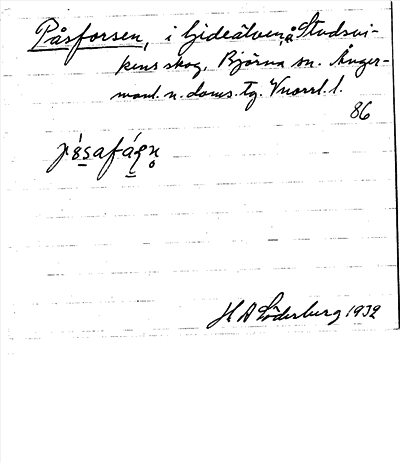 Påsforsen, i Gideälven, å Studsvi-
kens skog, Björna sn. Ånger-
manl. n. doms. tg. Vnorrl. l.
86
H A Söderburg 1932